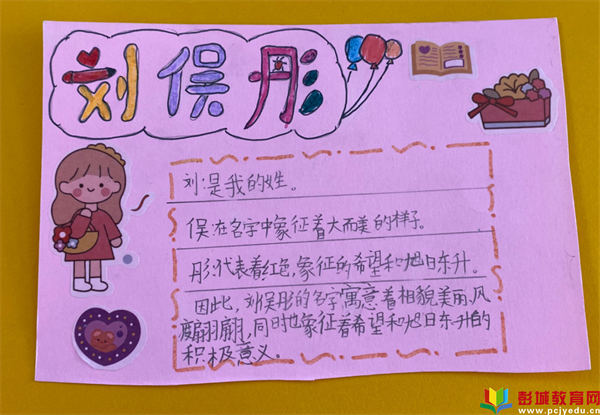 刘俣彤
刘:是我的姓。
俣:在名字中象征着大而美的样子。
彤:代表着红色,象征的希望和旭日东升。
因此,刘俣彤的名字寓意着相貌美丽,风
度翩翩,同时也象征着希望和旭日东升的
积极意义。
彭城教育网
www.pcjyedu.cn